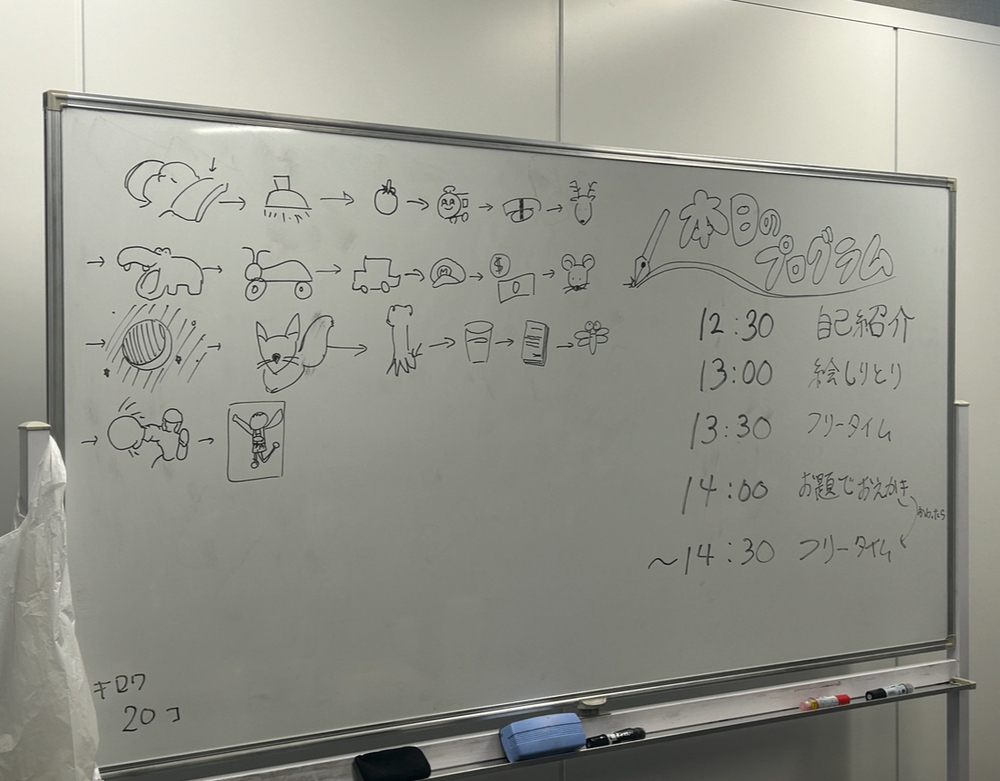 本日の
プログラム
12:30 自己紹介
13:00 絵しりとり
13:30 フリータイム
14:00 お題でおえかき
おわったら
〜14:30 フリータイム
M
$
キロク
20コ